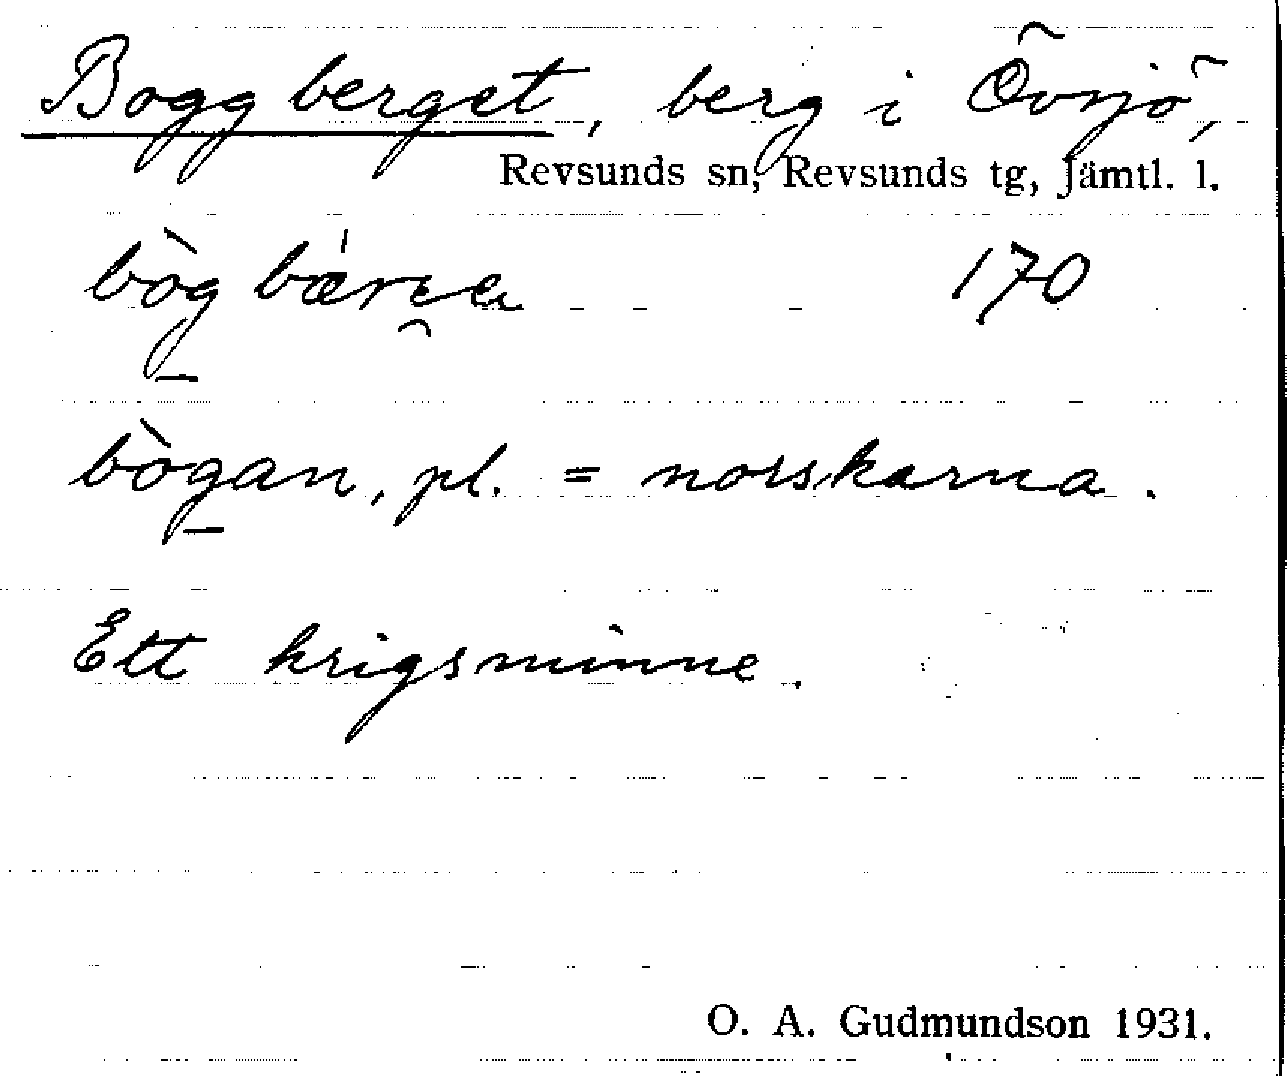 Boggberget, berg i Övsjö,
Revsunds sn, Revsunds tg, Jämtl. l.
170
bògan, pl. = norskarna.
Ett krigsminne.
O. A. Gudmundson 1931.